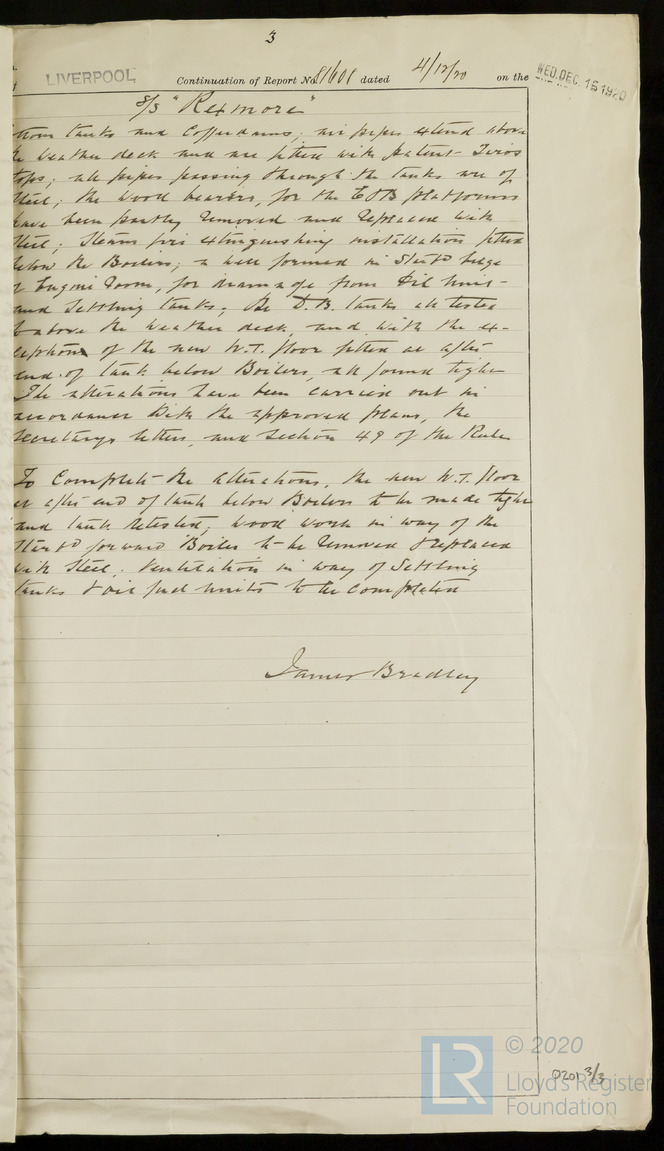 3
LIVERPOOL
Continuation of Report No. 81601 dated 4/12/20 on the WED. DEC. 15 1920
S/S "Rexmore"
from tanks and Cofferdams; air pipes extend above
the weather deck and are fitted with patent
tops; all pipes passing through the tanks are of
Steel; the wood bearers, for the platforms
have been partly removed and replaced with
Steel; Steam fire extinguishing installation fitted
below the Boilers; a well formed in Starbd bilge
of Engine Room, for drainage from Oil Units
and Settling tanks; the D.B. tanks all tested
above the weather deck, and with the ex-
ception of the new W.T. floor fitted at after
end of tank below Boilers, all found tight
The alterations have been carried out in
accordance with the approved plans, the
Secretarys letters, and Section 49 of the Rules
To Complete the alterations, the new W.T. floor
at after end of tank below Boilers to be made tight
and tank retested; wood work in way of the
Starbd forward Boiler to be removed & replaced
with Steel; Ventilation in way of Settling
tanks & oil fuel units to be completed
James Bradley
© 2020
LR
Lloyd's Register
Foundation
0201 3/3